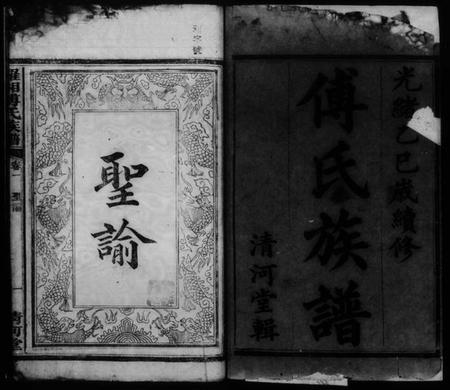 光緒乙巳歲續修
傅氏族譜
清河堂輯
聖諭
傅氏族譜
清河堂